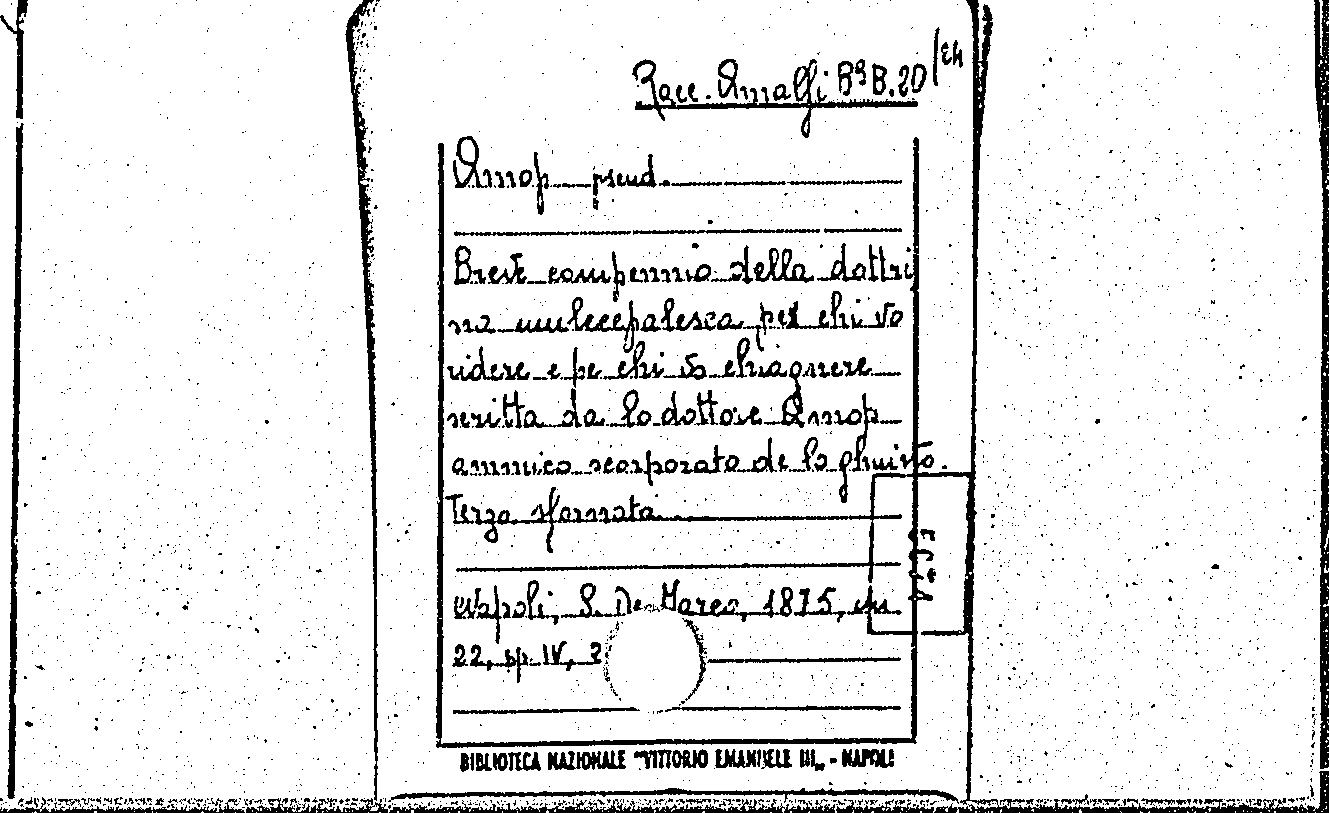 Racc. Amalfi Bª B. 20/24
Qnnop pseud.
Breve compennio della dottri
na mulecepalesca per chi vo
ridere e pe chi vo chiagnere
scritta da lo dottore Qnnop
ammico scorporato de lo ghiusto.
Terza sfornata
Napoli, S. De Marco, 1875, in
22, pp. IV, 2
BIBLIOTECA NAZIONALE "VITTORIO EMANUELE III„ - NAPOLI